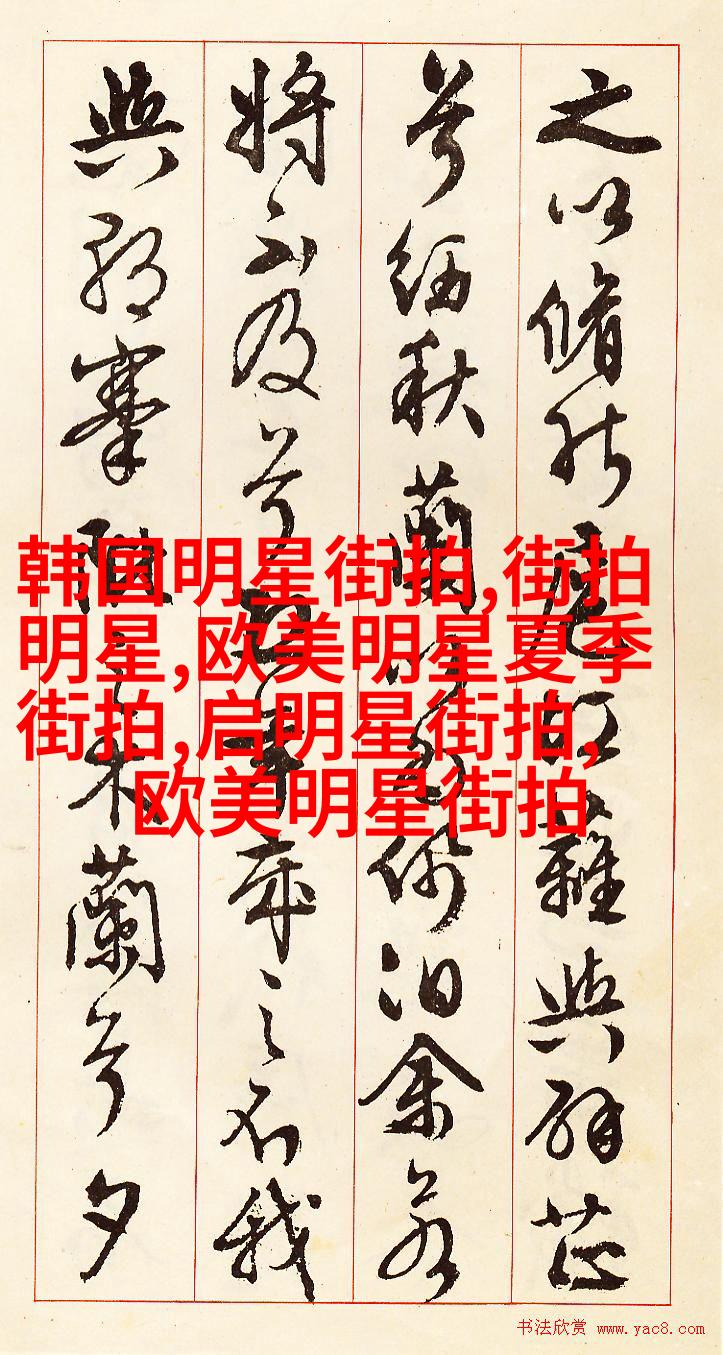 之以脩能扈江蘺與辟芷
兮紉秋蘭以為佩汩余若
將不及兮恐年歲之不我
與朝搴阰之木蘭兮夕
韩国明星街拍,街拍
明星,欧美明星夏季
街拍,启明星街拍,
欧美明星街拍
书法欣赏 www.yac8.com